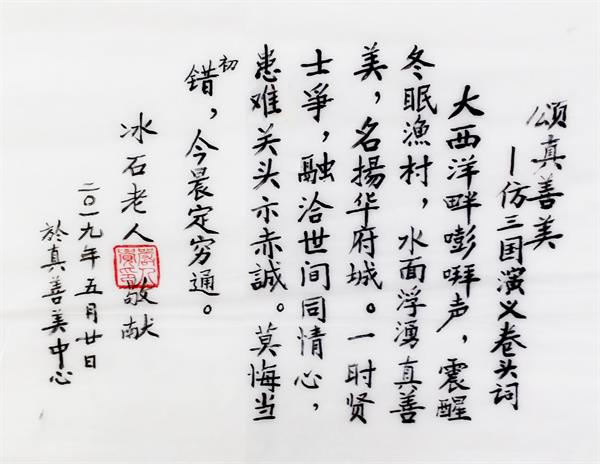 颂真善美
—仿三国演义卷头词
大西洋畔嘭哔声，震醒
冬眠渔村，水面浮湧真善
美，名揚华府城。一时贤
士爭，融洽世间同情心，
患难关头亦赤誠。莫悔当
初错，今晨定穷通。
冰石老人敬献
二〇一九年五月廿日
於真善美中心